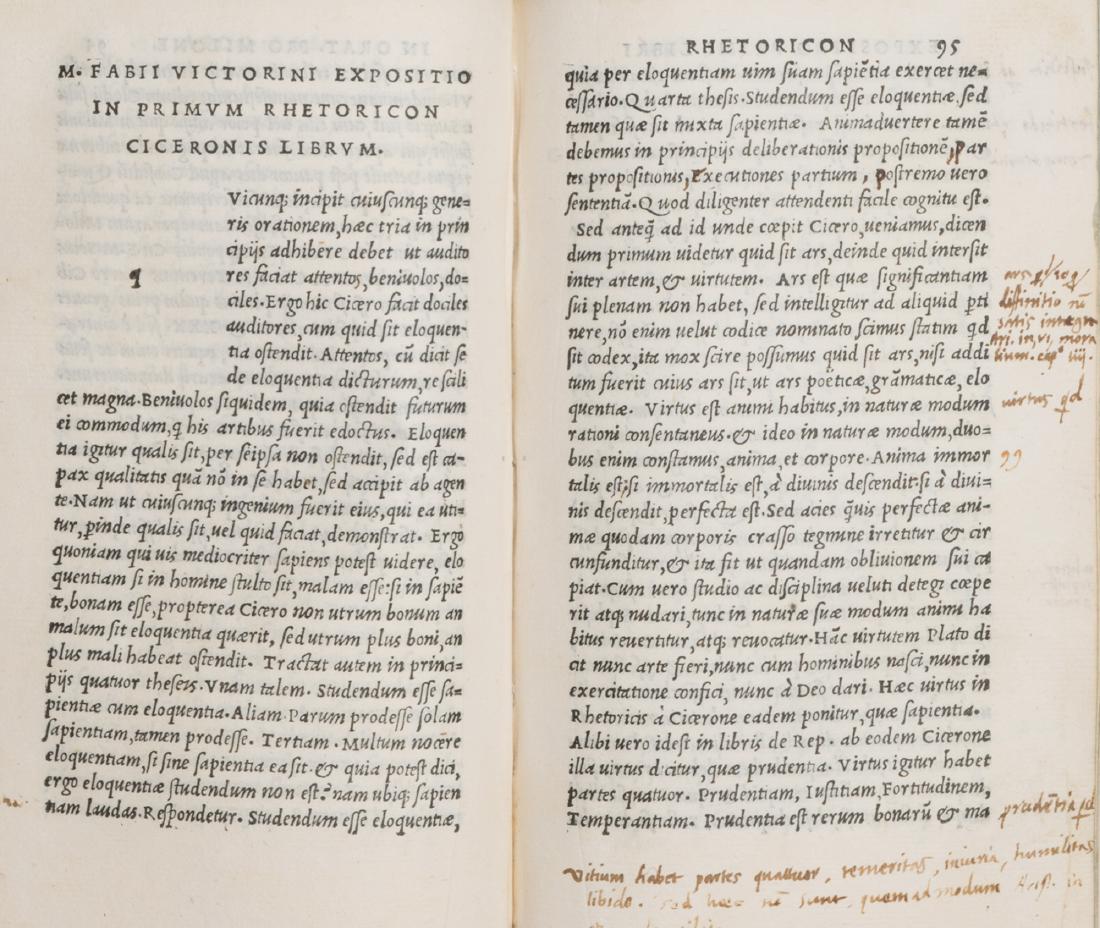 M. FABII VICTORINI EXPOSITIO
IN PRIMVM RHETORICON
CICERONIS LIBRVM.
q
Vicunq; incipit cuiuscunq; gene=
ris orationem, hæc tria in prin
cipijs adhibere debet ut audito
res faciat attentos, beniuolos, do=
ciles. Ergo hic Cicero facit dociles
auditores, cum quid sit eloquen-
tia ostendit. Attentos, cū dicit se
de eloquentia dicturum, re scili
cet magna. Beniuolos siquidem, quia ostendit futurum
ei commodum, q his artibus fuerit edoctus. Eloquen
tia igitur qualis sit, per seipsa non ostendit, sed est ca-
pax qualitatis quā nō in se habet, sed accipit ab agen
te. Nam ut cuiuscunq; ingenium fuerit eius, qui ea uti=
tur, ꝑinde qualis sit, uel quid faciat, demonstrat. Ergo
quoniam qui uis mediocriter sapiens potest uidere, elo
quentiam si in homine stulto sit, malam esse: si in sapiē
te, bonam esse, propterea Cicero non utrum bonum an
malum sit eloquentia quærit, sed utrum plus boni, an
plus mali habeat ostendit. Tractat autem in princi=
pijs quatuor theseis. Vnam talem. Studendum esse sa=
pientiæ cum eloquentia. Aliam. Parum prodesse solam
sapientiam, tamen prodesse. Tertiam. Multum nocere
eloquentiam, si sine sapientia ea sit. & quia potest dici,
ergo eloquentiæ studendum non est? nam ubiq; sapien
nam laudas. Respondetur. Studendum esse eloquentiæ,
RHETORICON 95
quia per eloquentiam uim suam sapiētia exercet ne=
cessario. Quarta thesis. Studendum esse eloquentiæ, sed
tamen quæ sit mixta sapientiæ. Animaduertere tamē
debemus in principijs deliberationis propositionē, Par
tes propositionis, Executiones partium, postremo uero
sententiā. Quod diligenter attendenti facile cognitu est.
Sed anteq̄ ad id unde cœpit Cicero, ueniamus, dicen
dum primum uidetur quid sit ars, deinde quid intersit
inter artem, & uirtutem. Ars est quæ significantiam
sui plenam non habet, sed intelligitur ad aliquid ꝑti
nere, nō enim uelut codice nominato scimus statim qd
sit codex, ita mox scire possumus quid sit ars, nisi addi
tum fuerit cuius ars sit, ut ars poëticæ, grāmaticæ, elo
quentiæ. Virtus est animi habitus, in naturæ modum
rationi consentaneus. & ideo in naturæ modum, duo=
bus enim constamus, anima, et corpore. Anima immor
talis est; si immortalis est, à diuinis descendit: si à diui=
nis descendit, perfecta est. Sed acies q̄uis perfectæ ani-
mæ quodam corporis crasso tegmine irretitur & cir
cunfunditur, & ita fit ut quandam obliuionem sui ca
piat. Cum uero studio ac disciplina ueluti detegi cœpe
rit atq; nudari, tunc in naturæ suæ modum animi ha
bitus reuertitur, atq; reuocatur. Hāc uirtutem Plato di
cit nunc arte fieri, nunc cum hominibus nasci, nunc in
exercitatione confici, nunc à Deo dari. Hæc uirtus in
Rhetoricis à Cicerone eadem ponitur, quæ sapientia.
Alibi uero idest in libris de Rep. ab eodem Cicerone
illa uirtus dicitur, quæ prudentia. Virtus igitur habet
partes quatuor. Prudentiam, Iustitiam, Fortitudinem,
Temperantiam. Prudentia est rerum bonarū & ma
diffinitio nō
satis integra
uirtus qd
99
prudētia qd
Vitium habet partes quattuor, temeritas, iniuria, humilitas
libido. sed hæc nō sunt, quemadmodum in